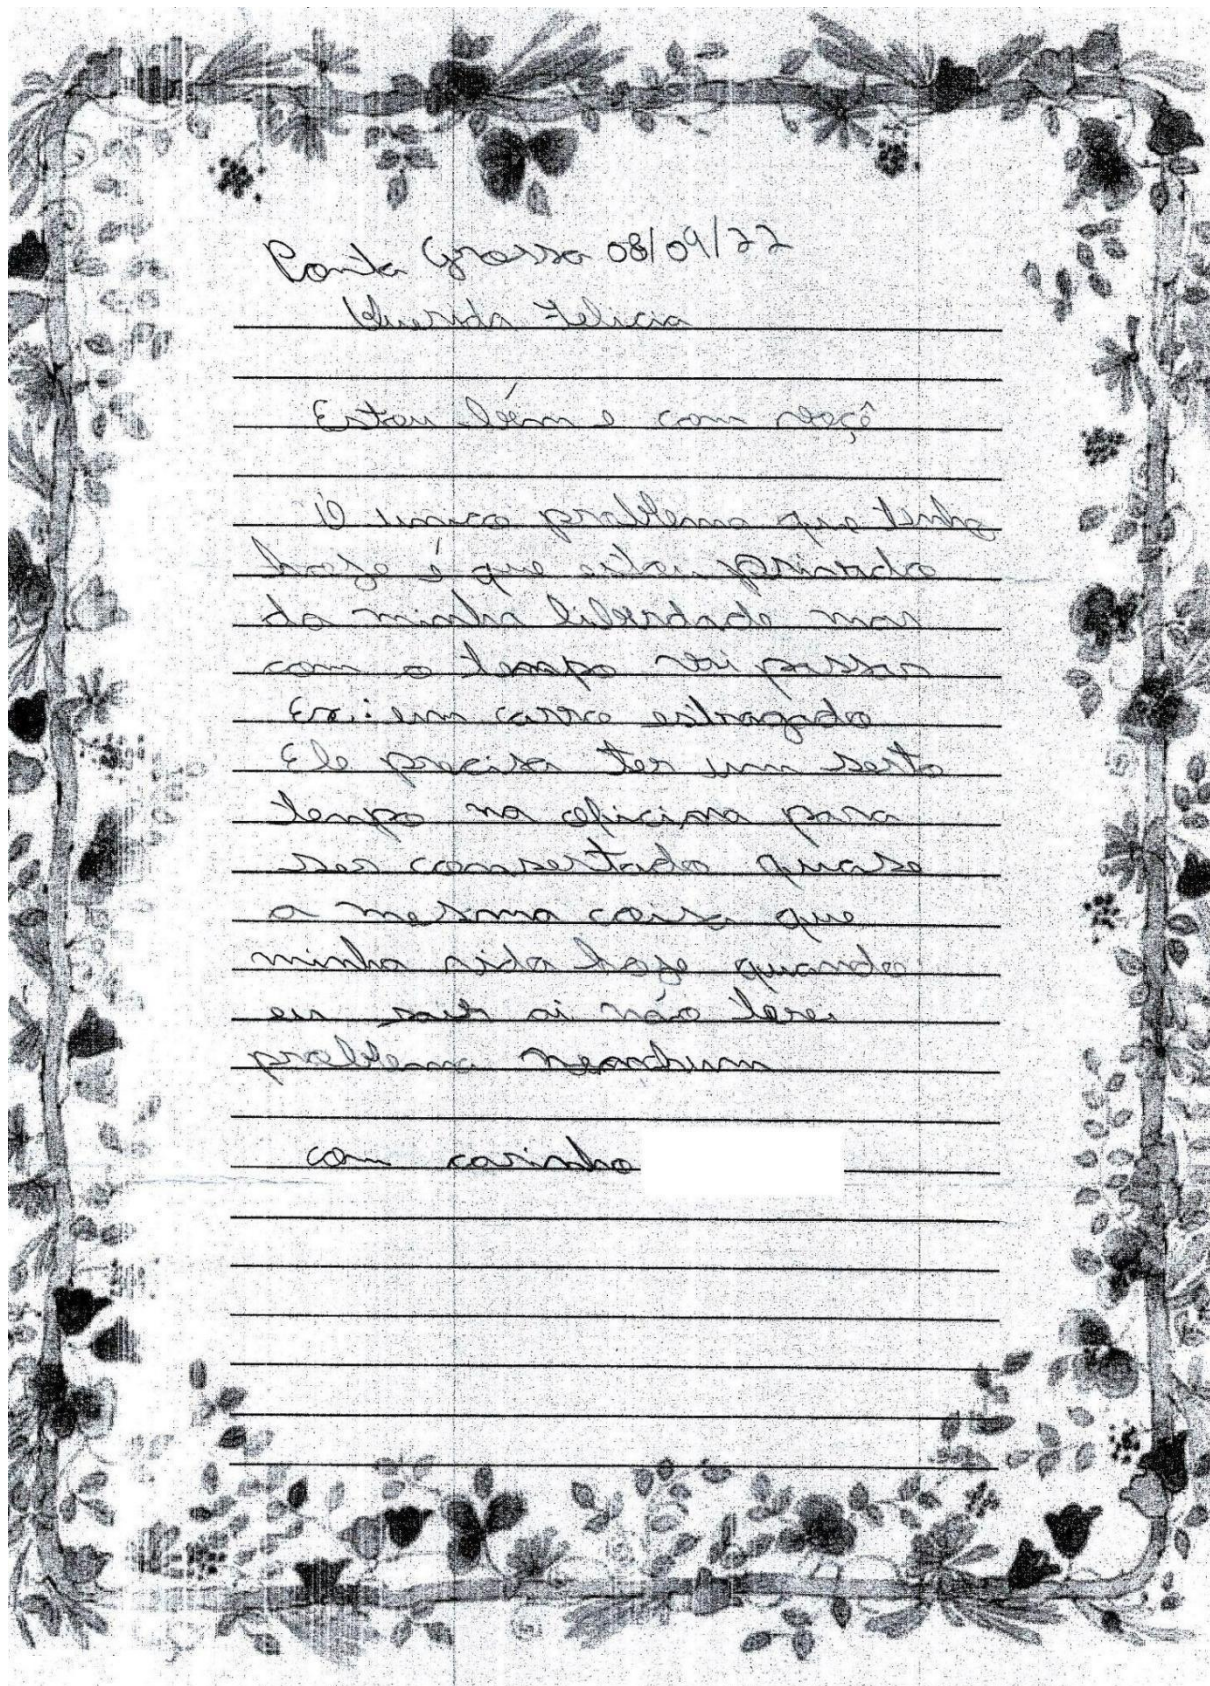 Ponta Grossa 08/09/22
Querida Felicia
Estou bém e com voçê
O unico problema que tenho
hoje é que estou privado
da minha liberdade mas
com o tempo vai passar
Ex: um carro estragado
Ele precisa ter um serto
tempo na oficina para
ser consertado quase
a mesma coisa que
minha vida hoje quando
eu sair ai não terei
problema nenhum
com carinho